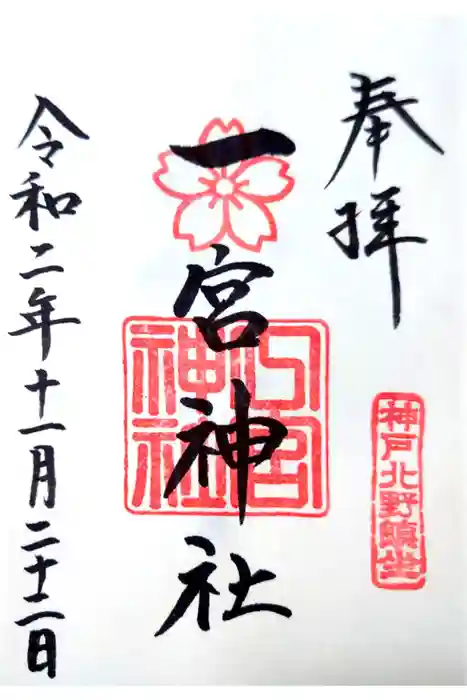 奉拝
神戸北野鎮坐
一宮神社
宮
神社
令和二年十一月二十二日